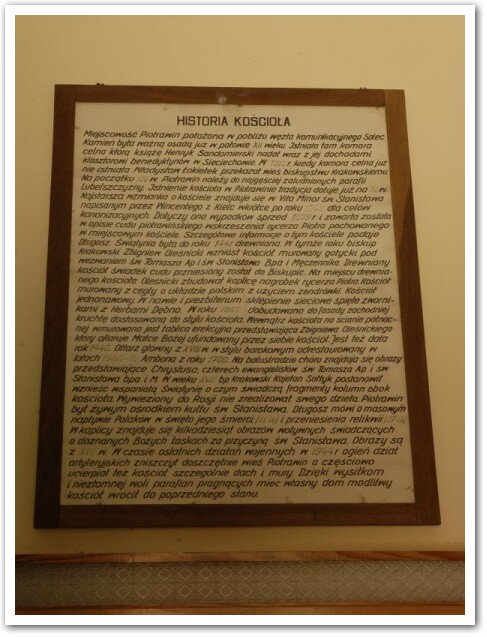 HISTORIA KOŚCIOŁA
Miejscowość Piotrawin położona w pobliżu węzła komunikacyjnego Solec
Kamień była ważną osadą już w połowie XII wieku. Istniała tam komora
celna którą książę Henryk Sandomierski nadał wraz z jej dochodami
klasztorowi benedyktynów w Sieciechowie. W kiedy komora celna już
nie istniała Władysław Łokietek przekazał wieś biskupstwu krakowskiemu
Na początku w. Piotrawin należy do najgęściej zaludnionych parafii
Lubelszczyzny. Istnienie kościoła w Piotrawinie tradycja datuje już na w.
Najstarsza wzmianka o kościele znajduje się w Vita Minor św. Stanisława
napisanym przez Wincentego z Kielc wkrótce po roku dla celów
kanonizacyjnych. Dotyczy ona wypadków sprzed r i zawarta została
w opisie cudu piotrawińskiego wskrzeszenia rycerza Piotra pochowanego
w miejscowym kościele. Szczegółowe informacje o tym kościele podaje
Długosz. Świątynia była do roku 1441 drewniana. W tymże roku biskup
krakowski Zbigniew Oleśnicki wzniósł kościół murowany gotycki pod
wezwaniem św Tomasza Ap i św Stanisława Bpa i Męczennika. Drewniany
kościół świadek cudu przniesiony został do Biskupic. Na miejscu drewnia-
nego kościoła Oleśnicki zbudował kaplicę nagrobek rycerza Piotra Kościół
murowany z cegły o układzie polskim z użyciem zendrówki. Kościół
jednonawowy. W nawie i prezbiterium sklepienie sieciowe spięte zworni-
kami z Herbami Dębno. W roku dobudowano do fasady zachodniej
kruchtę dostosowaną do stylu kościoła. Wewnątrz kościoła na ścianie północ-
nej wmurowana jest tablica erekcyjna przedstawiająca Zbigniewa Oleśnickiego
który ofiaruje Matce Bożej ufundowany przez siebie kościół. Jest też data
rok 1440. Ołtarz główny z XVIII w. w stylu barokowym odrestaurowany w
latach Ambona z roku 1700. Na balustradzie chóru znajdują się obrazy
przedstawiające Chrystusa, czterech ewangelistów św Tomasza Ap i św
Stanisława bpa, i M. W wieku bp krakowski Kajetan Sołtyk postanowił
wznieść wspaniałą Świątynię o czym świadczą fragmenty kolumn obok
kościoła. Wywieziony do Rosji nie zrealizował swego dzieła. Piotrawin
był żywym ośrodkiem kultu św Stanisława. Długosz mówi o masowym
napływie Polaków w święto jego śmierci i przeniesienia relikwii
W kaplicy znajduje się kilkadziesiąt obrazów wotywnych świadczących
o doznanych Bożych łaskach za przyczyną św Stanisława. Obrazy są
z XVII w. W czasie ostatnich działań wojennych w 1944 r ogień dział
artyleryjskich zniszczył doszczętnie wieś Piotrawin a częściowo
ucierpiał też kościół szczególnie dach i mury. Dzięki wysiłkom
i niezłomnej woli parafian pragnących mieć własny dom modlitwy
kościół wrócił do poprzedniego stanu.